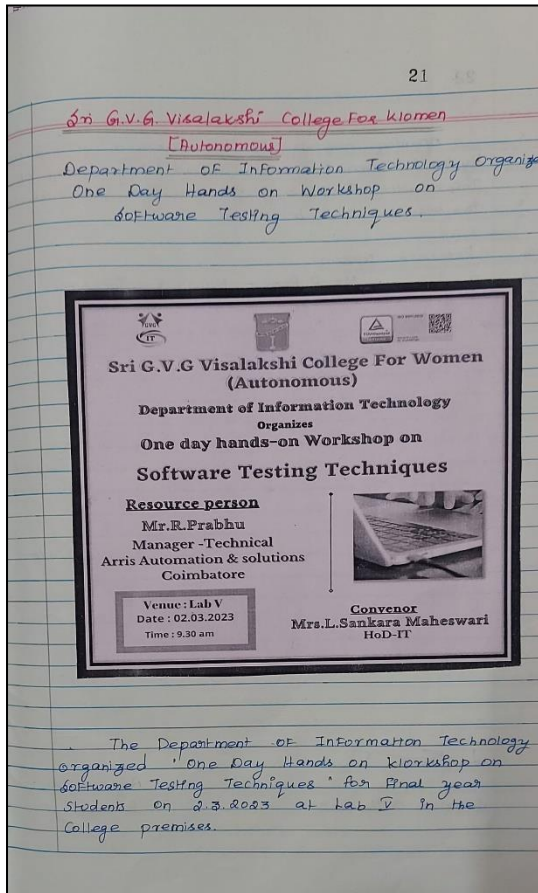 21
Sri G.V.G. Visalakshi College For Women
[Autonomous]
Department of Information Technology Organize
One Day Hands on Workshop on
Software Testing Techniques.
GVG
IT
Sri G.V.G Visalakshi College For Women
(Autonomous)
Department of Information Technology
Organizes
One day hands-on Workshop on
Software Testing Techniques
Resource person
Mr.R.Prabhu
Manager -Technical
Arris Automation & solutions
Coimbatore
Venue : Lab V
Date : 02.03.2023
Time : 9.30 am
Convenor
Mrs.L.Sankara Maheswari
HoD-IT
The Department of Information Technology
organized 'One Day Hands on Workshop on
Software Testing Techniques' for Final year
Students on 2.3.2023 at Lab V in the
College premises.